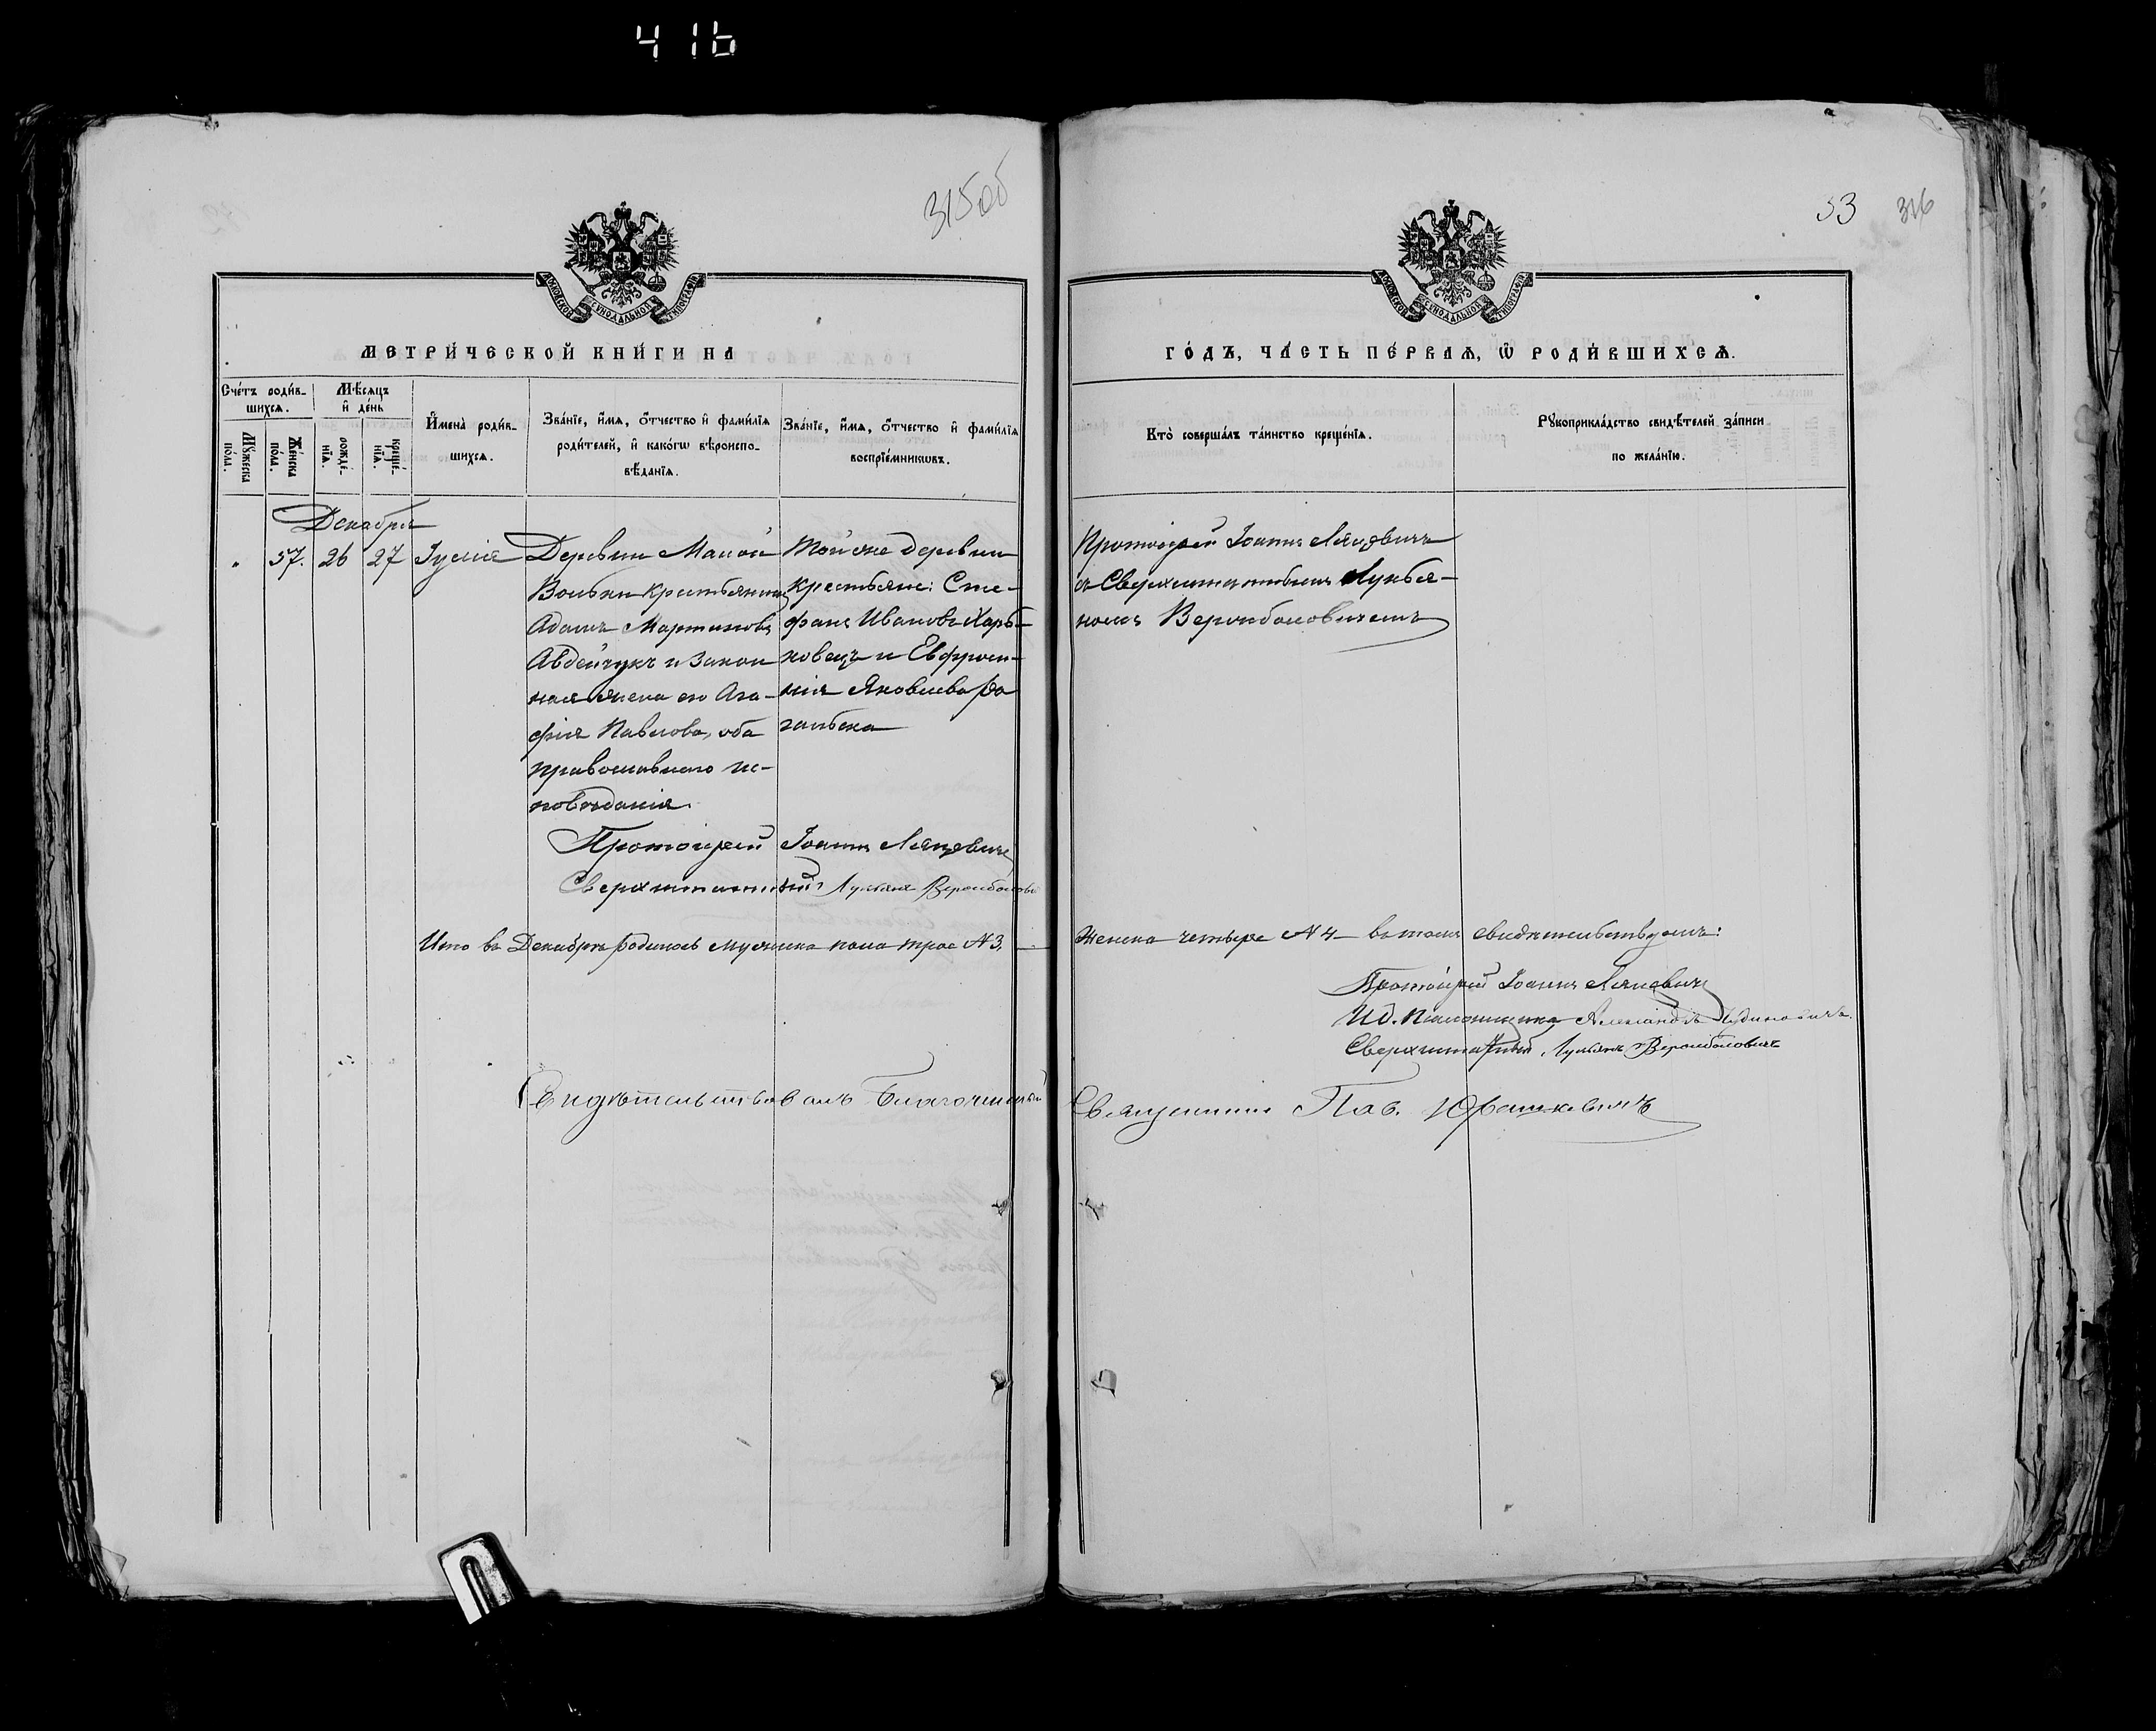 416
315об
МОСКОВСКОЙ СѴНОДАЛЬНОЙ ТИПОГРАФІИ
МЕТРИ́ЧЕСКОЙ КНИ́ГИ НА
Сче́тъ роди́в-
шихсѧ.
Мѣ́сѧцъ
и҆ де́нь
Мꙋ́жеска
по́ла.
Же́нска
по́ла.
рожде́-
нїѧ.
креще́-
нїѧ.
И҆мена̀ роди́в-
шихсѧ.
Зва́нїе, и҆́мѧ, ѻ҆́тчество и҆ фами́лїѧ
роди́телей, и҆ како́гѡ вѣроиспо-
вѣ́данїѧ.
Зва́нїе, и҆́мѧ, ѻ҆́тчество и҆ фами́лїѧ
воспрїе́мникѡвъ.
Декабря
57. 26 27 Іулія
Деревни Малой
Вольки крестьянинъ
Адамъ Мартиновъ
Авдейчукъ и закон
ная жена его Ага-
фія Павлова, оба
православнаго ис-
повѣданія.
Той же деревни
крестьяне: Сте-
фанъ Ивановъ Харь-
ковецъ и Евфроси-
нія Яковлева Ро
гальска
Протоіерей Іоаннъ
Сверхштатный Лукьянъ
Что въ Декабрѣ родилось мужеска пола трое N 3,
Свидѣтельствовалъ Благочинный
53 316
МОСКОВСКОЙ СѴНОДАЛЬНОЙ ТИПОГРАФІИ
ГО́ДЪ, ЧА́СТЬ ПЕ́РВАѦ, Ѡ҆ РОДИ́ВШИХСѦ.
Кто̀ соверша́лъ та́инство креще́нїѧ.
Рꙋкоприкла́дство свидѣ́телей за́писи
по жела́нїю.
Протоіерей Іоаннъ
съ Сверхштатнымъ Лукья-
номъ
женска четверо N 4 въ томъ свидѣтельствуемъ:
Протоіерей Іоаннъ
И. д. Псаломщика Александръ
Сверхштатный Лукьянъ
Священникъ Пав. Юрашкевичъ